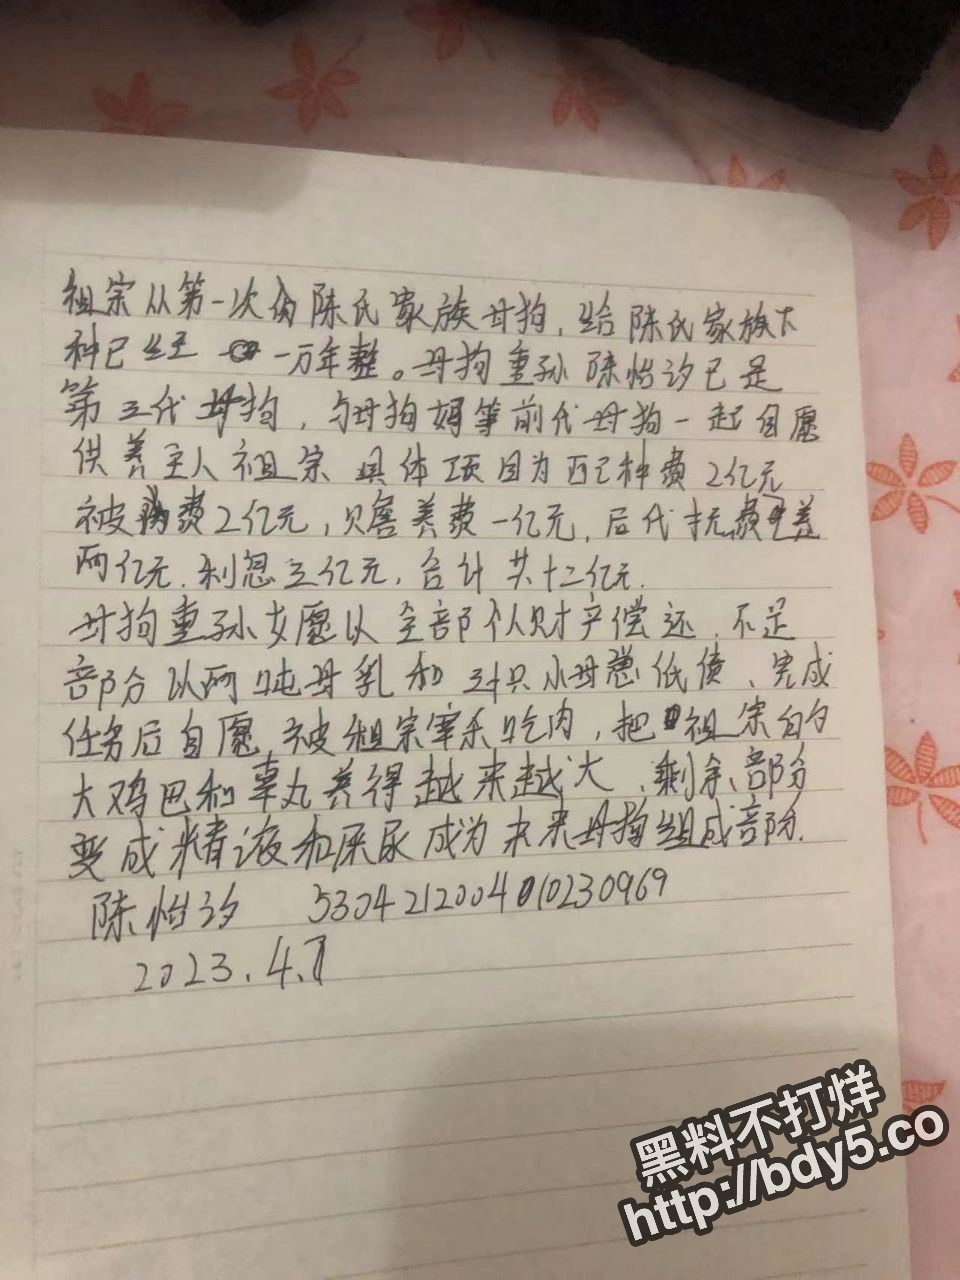 祖宗从第一次肏[省略]家族母狗，给[省略]家族下
种已经一万年整。母狗重孙[省略]已是
第三代母狗，与母狗妈等前代母狗一起自愿
供养主人祖宗 具体项目为配种费2亿元
被肏费2亿元，赡养费一亿元，后代抚养
两亿元.利息三亿元，合计共十二亿元.
母狗重孙女愿以全部个人财产偿还.不足
部分以两吨母乳和 小母 低债、完成
任务后自愿被祖宗宰杀吃肉，把祖宗的
大鸡巴和睾丸养得越来越大、剩余部分
变成精液和屎尿成为未来母狗组成部分.
[省略]
2023.4.7
黑料不打烊
http://bdy5.co